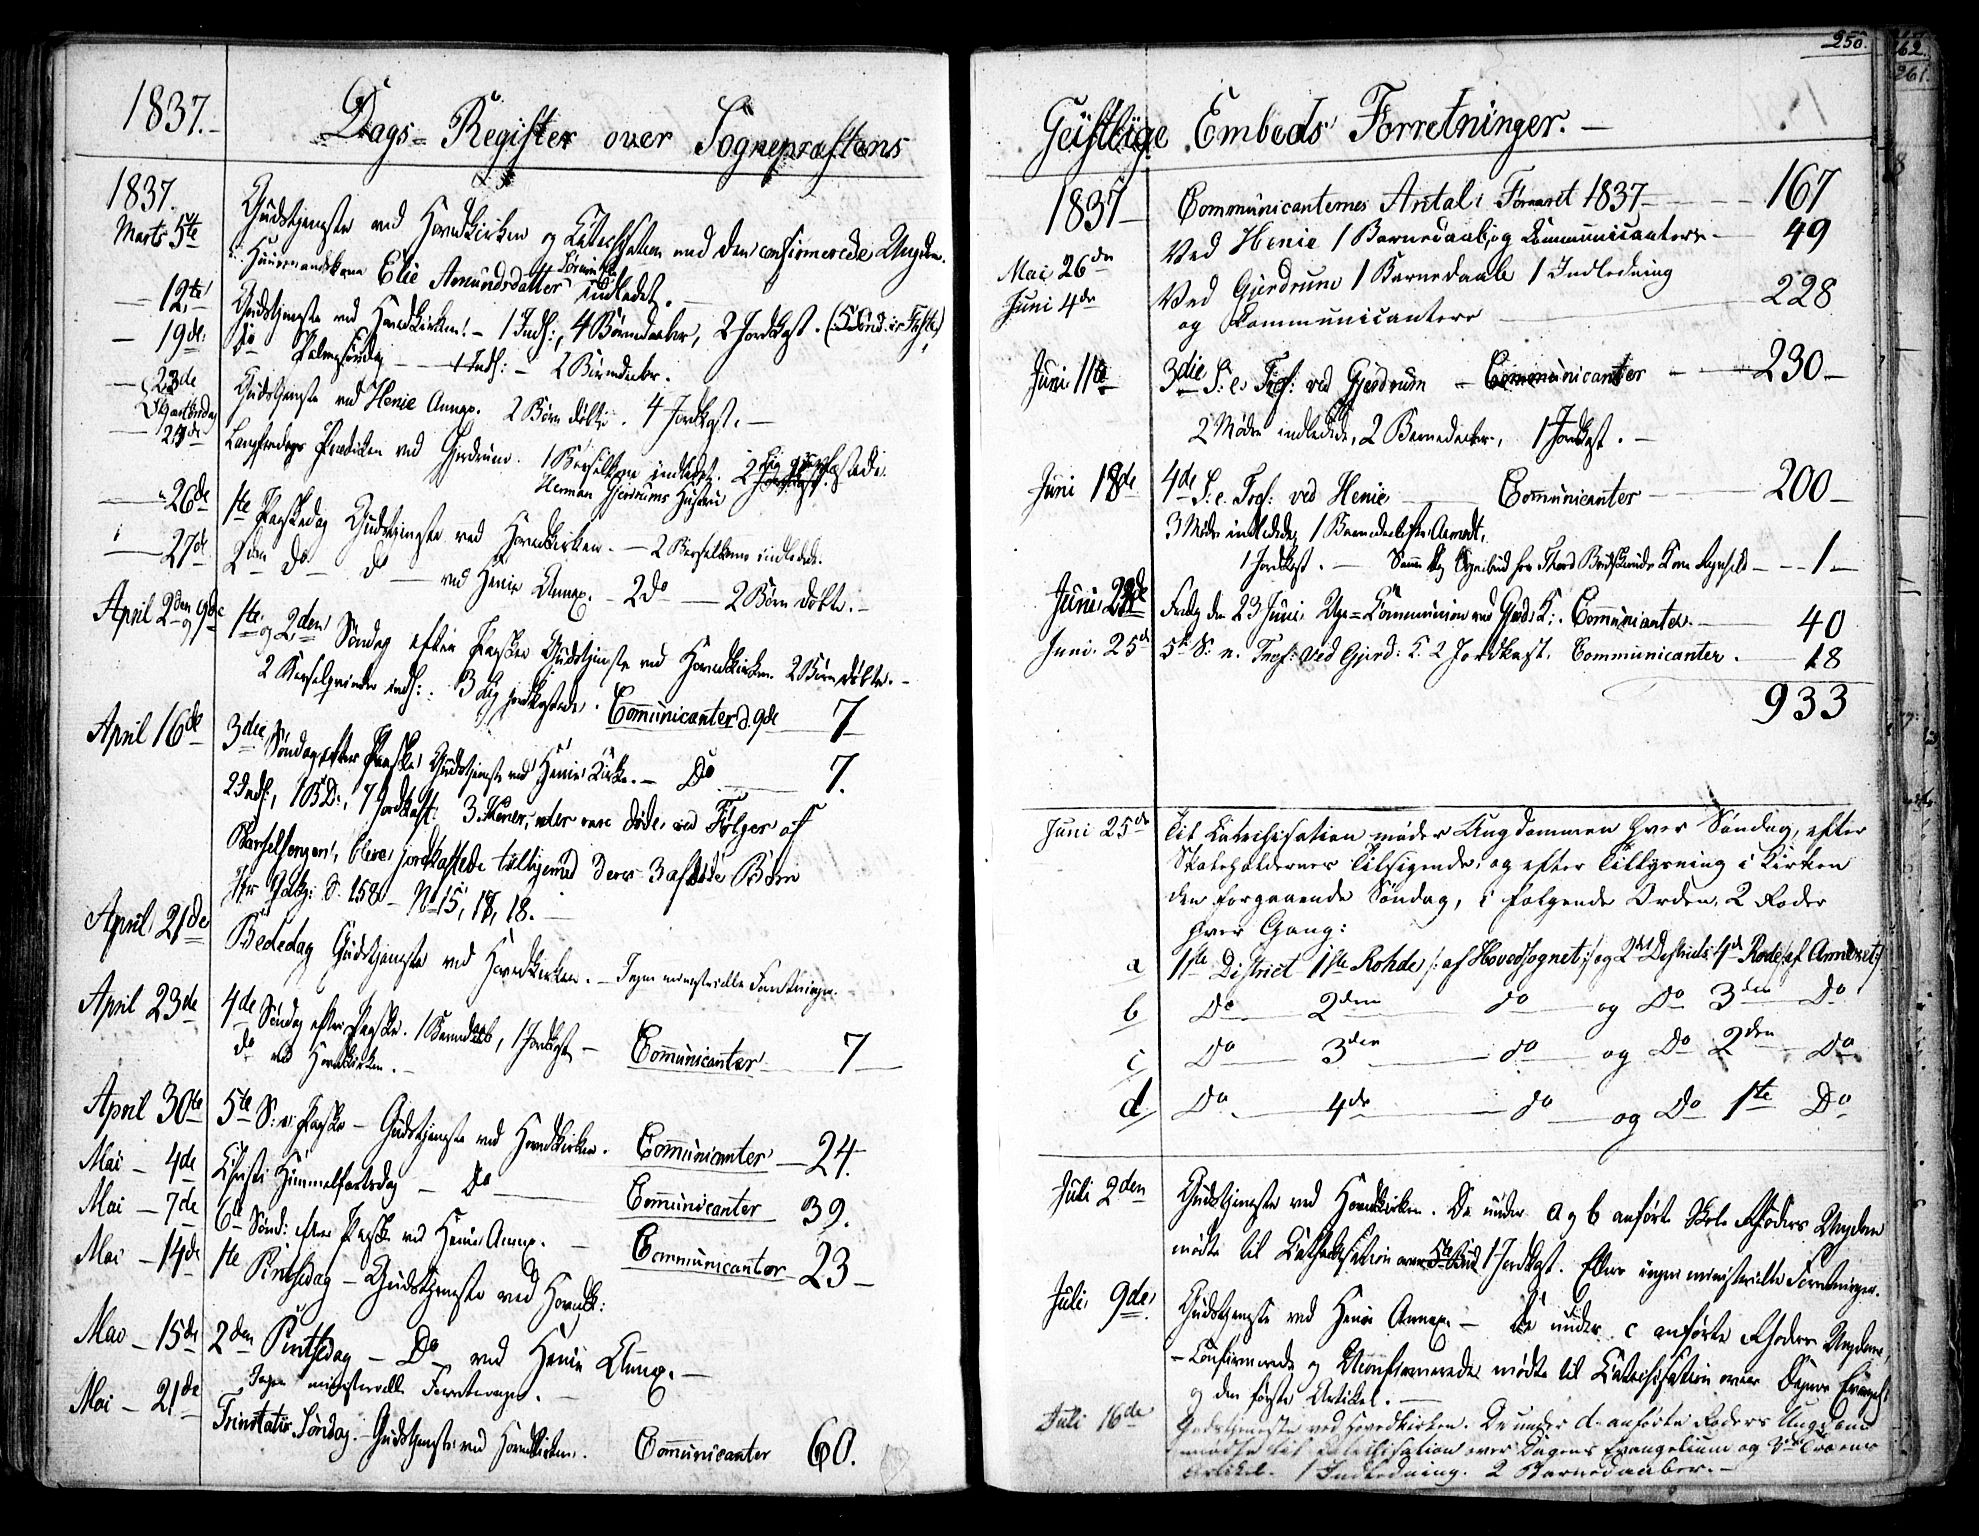 1837.
Dags-Register over Sognepræstens
1837.
Marts 5te Gudstjeneste ved Hovedkirken og Catechisation med den confirmerede Ungdom.
Huusmandskone Elie Amundsdatter indledet.
12te Gudstjeneste ved Hovedkirken. 1 Indl:, 4 Børnedaaber, 2 Jordkast. (5 Sønd. i Faste)
19de Do Palmesøndag 1 Indl: 2 Børnedaaber.
23de Gudstjeneste ved Henie Annex. 2 Børn døbte. 4 Jordkast.
Skjærtorsdag
24de Langfredags Prædiken ved Gjerdrum. 1 Barselkone indledet. 2 Lig jordfæstede.
Herman Gjerdrums Hustru
26de 1ste Paaskedag Gudstjeneste ved Hovedkirken. 2 Barselkoner indledede.
27de 2den Do do ved Henie Annex. 2 do 2 Børn døbte.
April 2den og 9de 1ste og 2den Søndag efter Paaske Gudstjeneste ved Hovedkirken. 2 Børn døbte.
2 Barselqvinder indl:. 3 Lig jordkastede. Communicanter d. 9de 7
April 16de 3die Søndag efter Paaske Gudstjeneste ved Henie Kirke. Do 7.
2 Indl:, 1 B. D:, 7 Jordkast: 3 Koner, der vare døde ved Følger af
Barselsengen, bleve jordkastede tilligemed deres 3 afdøde Børn
S. 158 No 15, 17, 18.
April 21de Bededag Gudstjeneste ved Hovedkirken. Ingen ministerielle Forretninger.
April 23de 4de Søndag efter Paaske. 1 Barnedaab, 1 Jordkast Communicanter 7
do ved Hovedkirken.
April 30te 5te S: e: Paaske Gudstjeneste ved Hovedkirken. Communicanter 24.
Mai 4de Christi Himmelfartsdag Do Communicanter 39.
Mai 7de 6te Sønd: efter Paaske ved Henie Annex. Communicanter 23
Mai 14de 1ste Pintsedag Gudstjeneste ved Hovedk:
Mai 15de 2den Pintsedag Do ved Henie Annex.
Ingen ministerielle Forretninger.
Mai 21de Trinitatis Søndag. Gudstjeneste ved Hovedkirken. Communicanter 60.
250.
Geistlige Embeds Forretninger.
1837 Communicanternes Antal i Foraaret 1837 167
Mai 26de Ved Henie 1 Barnedaab, og Communicantere 49
Juni 4de Ved Gjerdrum 1 Barnedaab 1 Indledning
og Communicantere 228
Juni 11te 3die S. e. Tref: ved Gjerdrum Communicanter 230
2 Mødre indledede, 2 Barnedaaber, 1 Jordkast.
Juni 18de 4de S. e. Tref: ved Henie Communicanter 200
3 Mødre indledede,
1 Jordkast. Samme Dag Sognebud 1
Juni 23de Fredag den 23 Juni Uge-Communion ved Gjerd: K: Communicanter 40
Juni 25de 5te S: e. Tref: ved Gjerd: K. 2 Jordkast. Communicanter 18
933
Juni 25de Til Catechisation møder Ungdommen hver Søndag, efter
Skoleholdernes Tilsigende, og efter Tillysning i Kirken
den forgaaende Søndag, i følgende Orden, 2 Roder
hver Gang:
a 1ste District 1ste Rohde /: af Hovedsognet :/ og 2det Districts 4de Rode /: af Annexet :/
b Do 2den do og Do 3den Do
c Do 3den do og Do 2den Do
d Do 4de do og Do 1ste Do
Juli 2den Gudstjeneste ved Hovedkirken. De under a og b anførte Skole Rhoders Ungdom
mødte til Catechisation 1 Jordkast. Ellers ingen ministerielle Forretninger.
Juli 9de Gudstjeneste ved Henie Annex. De under c anførte Rhoders Ungdom,
Confirmerede og Uconfirmerede mødte til Catechisation over Dagens Evangel:
og den første Artikel.
Juli 16de Gudstjeneste ved Hovedkirken. De under d. anførte Roders Ungdom
mødte til Catechisation over Dagens Evangelium og 2den Troens
Artikel. 1 Indledning. 2 Barnedaaber.
262
261